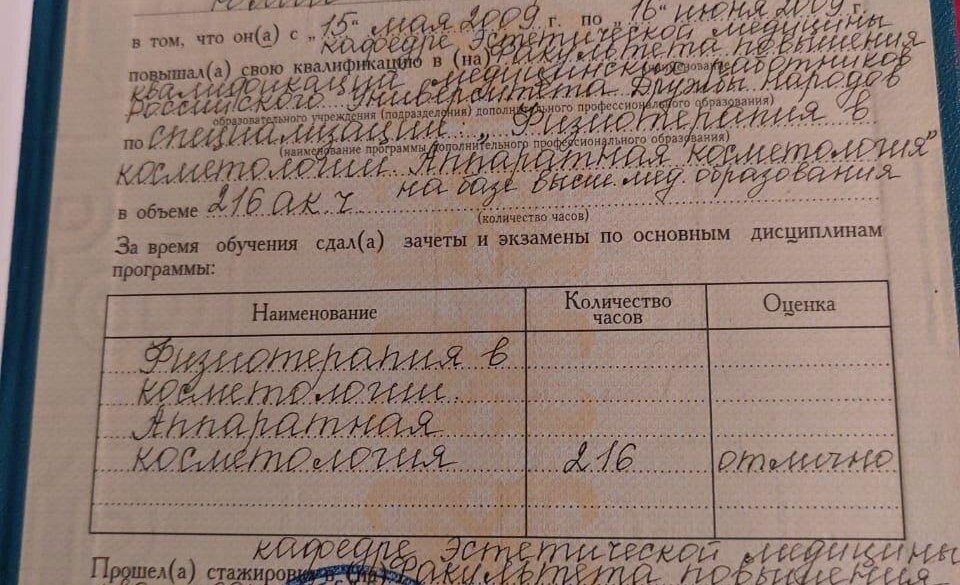 в том, что он(а) с „15" мая 2009 г. по „16" июня 2009 г.
кафедре Эстетической медицины
повышал(а) свою квалификацию в (на) Факультета повышения
квалификации медицинских работников
Российского Университета Дружбы народов
образовательного учреждения (подразделения) дополнительного профессионального образования)
по специализации: „Физиотерапия в
(наименование программы дополнительного профессионального образования)
косметологии. Аппаратная косметология"
на базе высш. мед. образования
в объеме 216 ак. ч.
(количество часов)
За время обучения сдал(а) зачеты и экзамены по основным дисциплинам
программы:
Наименование Количество часов Оценка
Физиотерапия в
косметологии.
Аппаратная
косметология 216 отлично
кафедре Эстетической медицины
Прошел(а) стажировку в (на) Факультета повышения